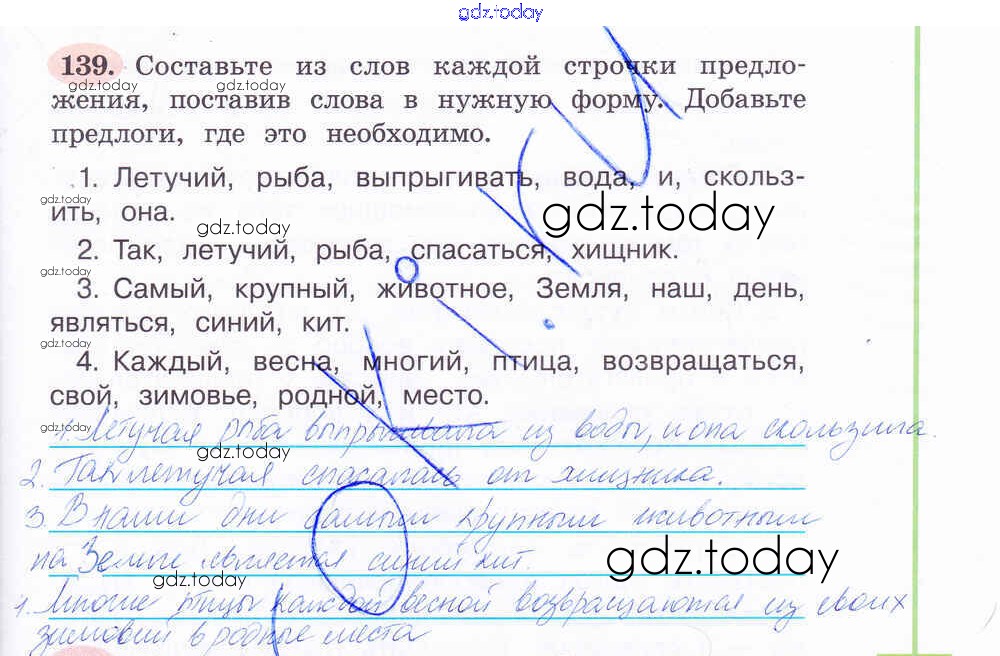 gdz.today
139. Составьте из слов каждой строчки предло-
gdz.today gdz.today
жения, поставив слова в нужную форму. Добавьте
предлоги, где это необходимо.
1. Летучий, рыба, выпрыгивать, вода, и, скольз-
gdz.today
ить, она.
gdz.today gdz.today
2. Так, летучий, рыба, спасаться, хищник.
gdz.today
3. Самый, крупный, животное, Земля, наш, день,
являться, синий, кит.
gdz.today
4. Каждый, весна, многий, птица, возвращаться,
свой, зимовье, родной, место.
1. Летучая рыба выпрыгивала из воды, и она скользила.
gdz.today gdz.today
2. Так летучая спасалась от хищника.
3. В наши дни самым крупным животным
на Земле является синий кит.
gdz.today gdz.today
4. Многие птицы каждой весной возвращаются из своих
зимовий в родные места
gdz.today
ok.ru